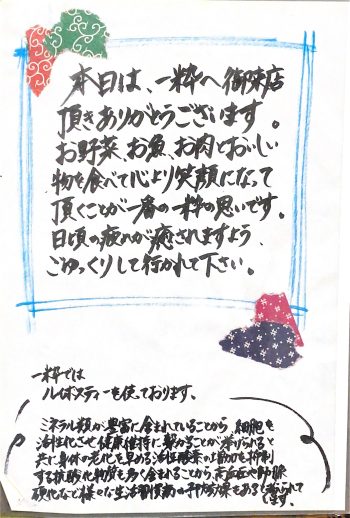 本日は、一粋へ御来店
頂きありがとうございます。
お野菜、お魚、お肉とおいしい
物を食べて心より笑顔になって
頂くことが一番の一粋の思いです。
日頃の疲れが癒されますよう、
ごゆっくりして行かれて下さい。
一粋では
ルイボスティーを使っております。
ミネラル類が豊富に含まれていることから、細胞を
活性化させ健康維持に繋がることが挙げられると
共に身体の老化を早める活性酸素の働きを抑制
する抗酸化物質も多く含まれることから、高血圧や動脈
硬化など様々な生活習慣病の予防効果もあると言われて
います。